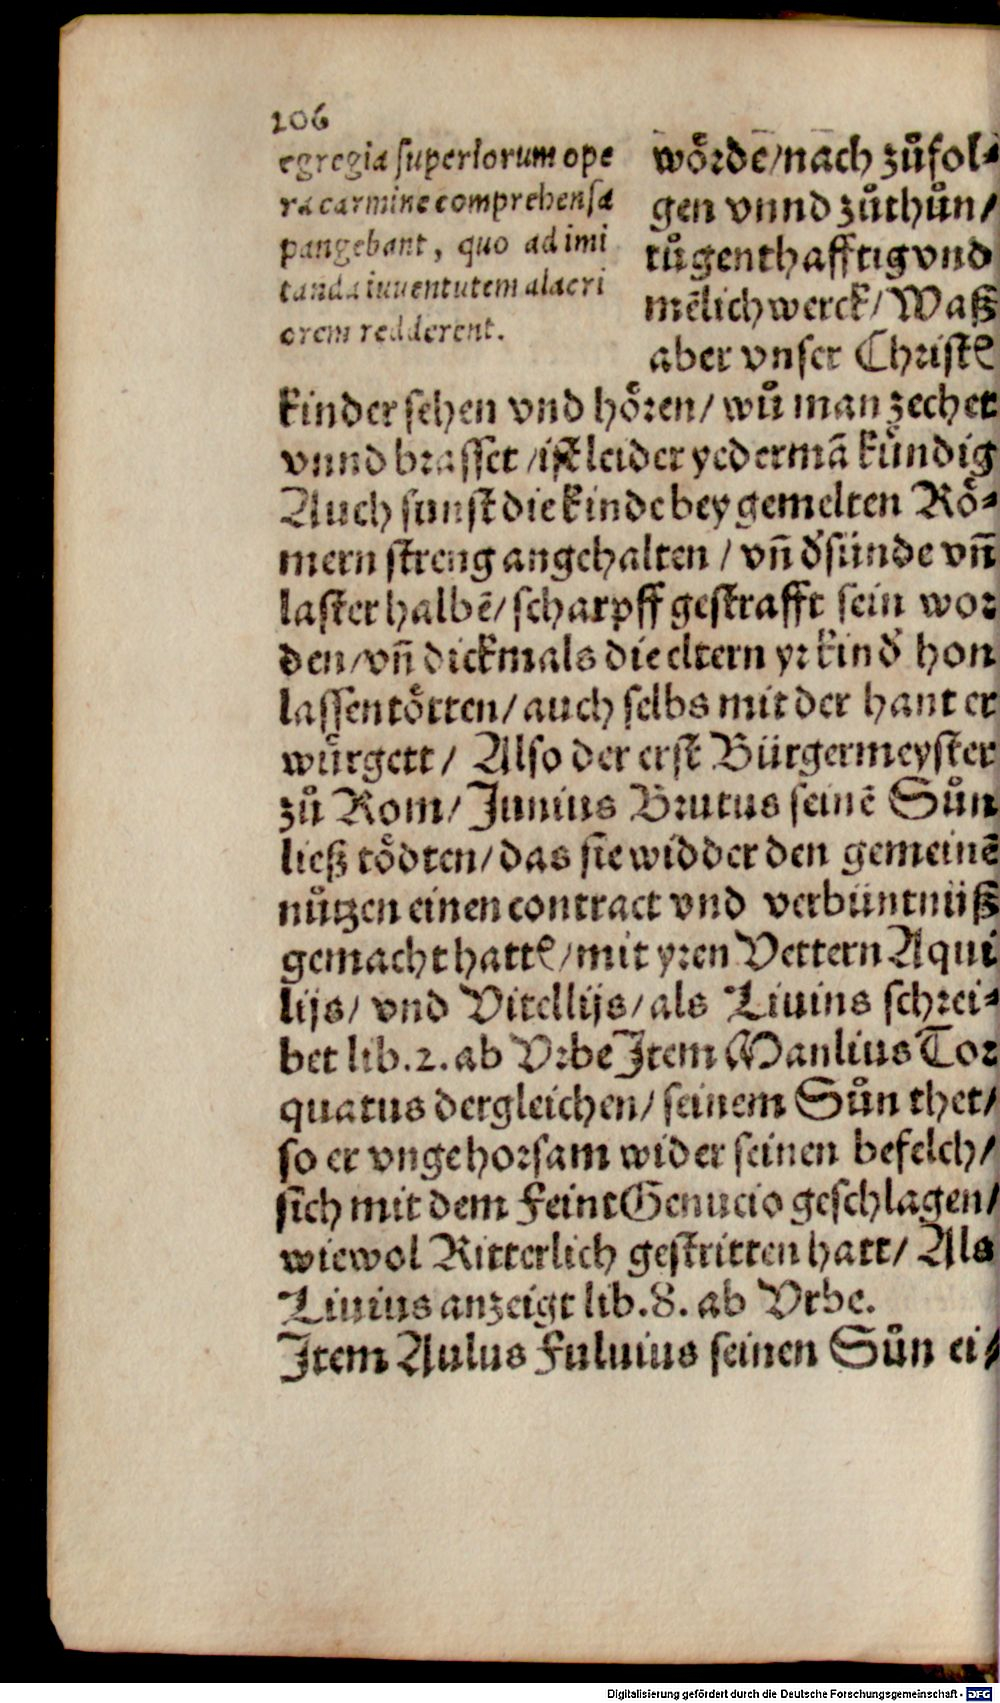 106
egregia superiorum ope
ra carmine comprehensa
pangebant, quo ad imi
tanda iuuentutem alacri
orem redderent.
woͤrdē/nach zůfol⸗
gen vnnd zůthůn/
tůgenthafftig vnd
mēlich werck/ Waß
aber vnser Christē
kinder sehen vnd hoͤren/ wů man zechet
vnnd brasset /ist leider yedermā kündig
Auch sunst die kinde bey gemelten Roͤ⸗
mern streng angehalten / vñ d̕ sünde vñ
laster halbē/ scharpff gestrafft sein wor
den/vñ dickmals die eltern yr kind̕ hon
lassen toͤtten/ auch selbs mit der hant er
würgett/ Also der erst Bürgermeyster
zů Rom/ Junius Brutus seinē Sůn
ließ toͤdten/das sie widder den gemeinē
nůtzen einen contract vnd verbüntnüß
gemacht hattē/mit yren Vettern Aqui
lijs/ vnd Vitellijs/als Liuius schrei⸗
bet lib.2. ab Vrbe Item Manlius Tor
quatus dergleichen/ seinem Sůn thet/
so er vngehorsam wider seinen befelch/
sich mit dem Feint Genucio geschlagen/
wiewol Ritterlich gestritten hatt/ Als
Liuius anzeigt lib.8. ab Vrbe.
Item Aulus Fuluius seinen Sůn ei/
Digitalisierung gefördert durch die Deutsche Forschungsgemeinschaft - DFG